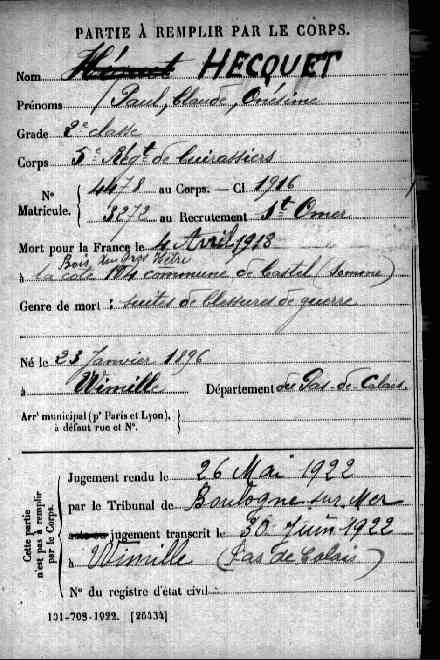 PARTIE À REMPLIR PAR LE CORPS.
Nom HECQUET
Prénoms Paul, Claude, Onésime
Grade 2e classe
Corps 5e Régt de Cuirassiers
N° Matricule. { 4478 au Corps. — Cl 1916
3272 au Recrutement St Omer
Mort pour la France le 4 Avril 1918
Bois du Gros Hêtre
à la cote 104 commune de Castel (Somme)
Genre de mort : suites de blessures de guerre
Né le 23 Janvier 1896
à Wimille Département du Pas-de-Calais
Arrt municipal (pr Paris et Lyon), à défaut rue et N°. }
Cette partie n'est pas à remplir par le Corps.
Jugement rendu le 26 Mai 1922
par le Tribunal de Boulogne sur Mer
jugement transcrit le 30 Juin 1922
à Wimille (Pas de Calais)
N° du registre d'état civil
131-708-1922. [26434]